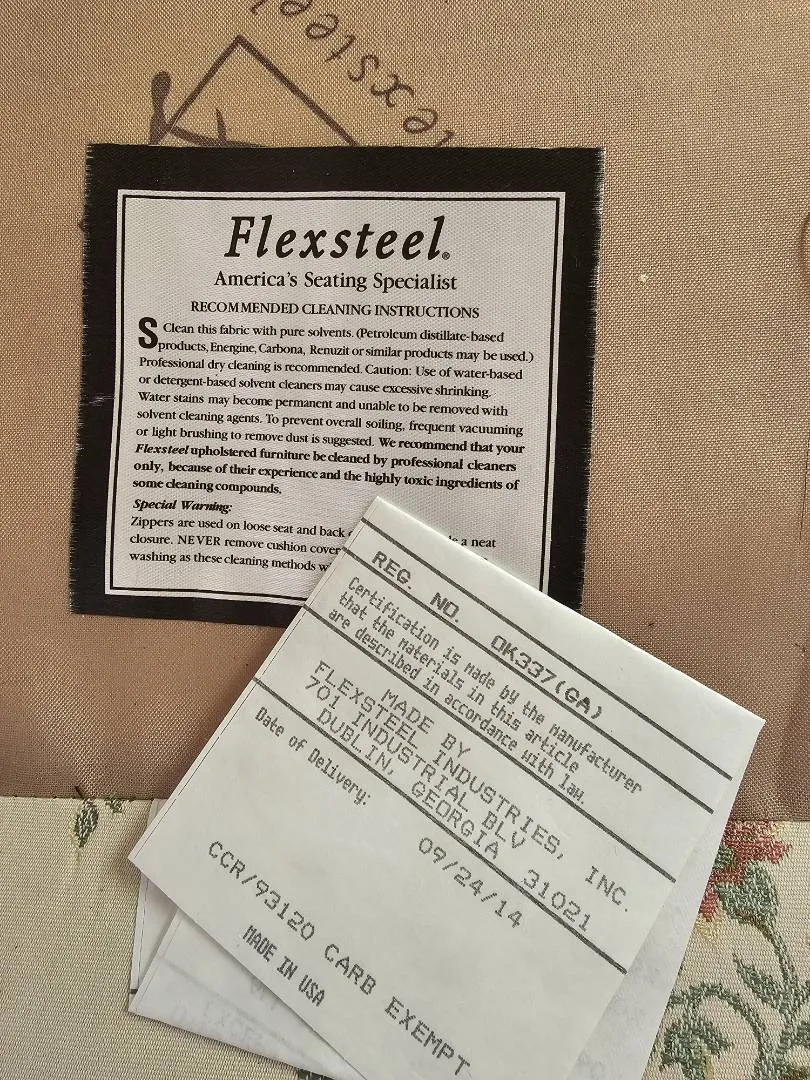 exsteel
Flexsteel®
America's Seating Specialist
RECOMMENDED CLEANING INSTRUCTIONS
S Clean this fabric with pure solvents. (Petroleum distillate-based
products, Energine, Carbona, Renuzit or similar products may be used.)
Professional dry cleaning is recommended. Caution: Use of water-based
or detergent-based solvent cleaners may cause excessive shrinking.
Water stains may become permanent and unable to be removed with
solvent cleaning agents. To prevent overall soiling, frequent vacuuming
or light brushing to remove dust is suggested. We recommend that your
Flexsteel upholstered furniture be cleaned by professional cleaners
only, because of their experience and the highly toxic ingredients of
some cleaning compounds.
Special Warning:
Zippers are used on loose seat and back a neat
closure. NEVER remove cushion cover
washing as these cleaning methods
REG. NO. OK337(GA)
Certification is made by the manufacturer
that the materials in this article
are described in accordance with law.
MADE BY
FLEXSTEEL INDUSTRIES, INC.
701 INDUSTRIAL BLV
DUBLIN, GEORGIA 31021
Date of Delivery:
09/24/14
CCR/93120 CARB EXEMPT
MADE IN USA